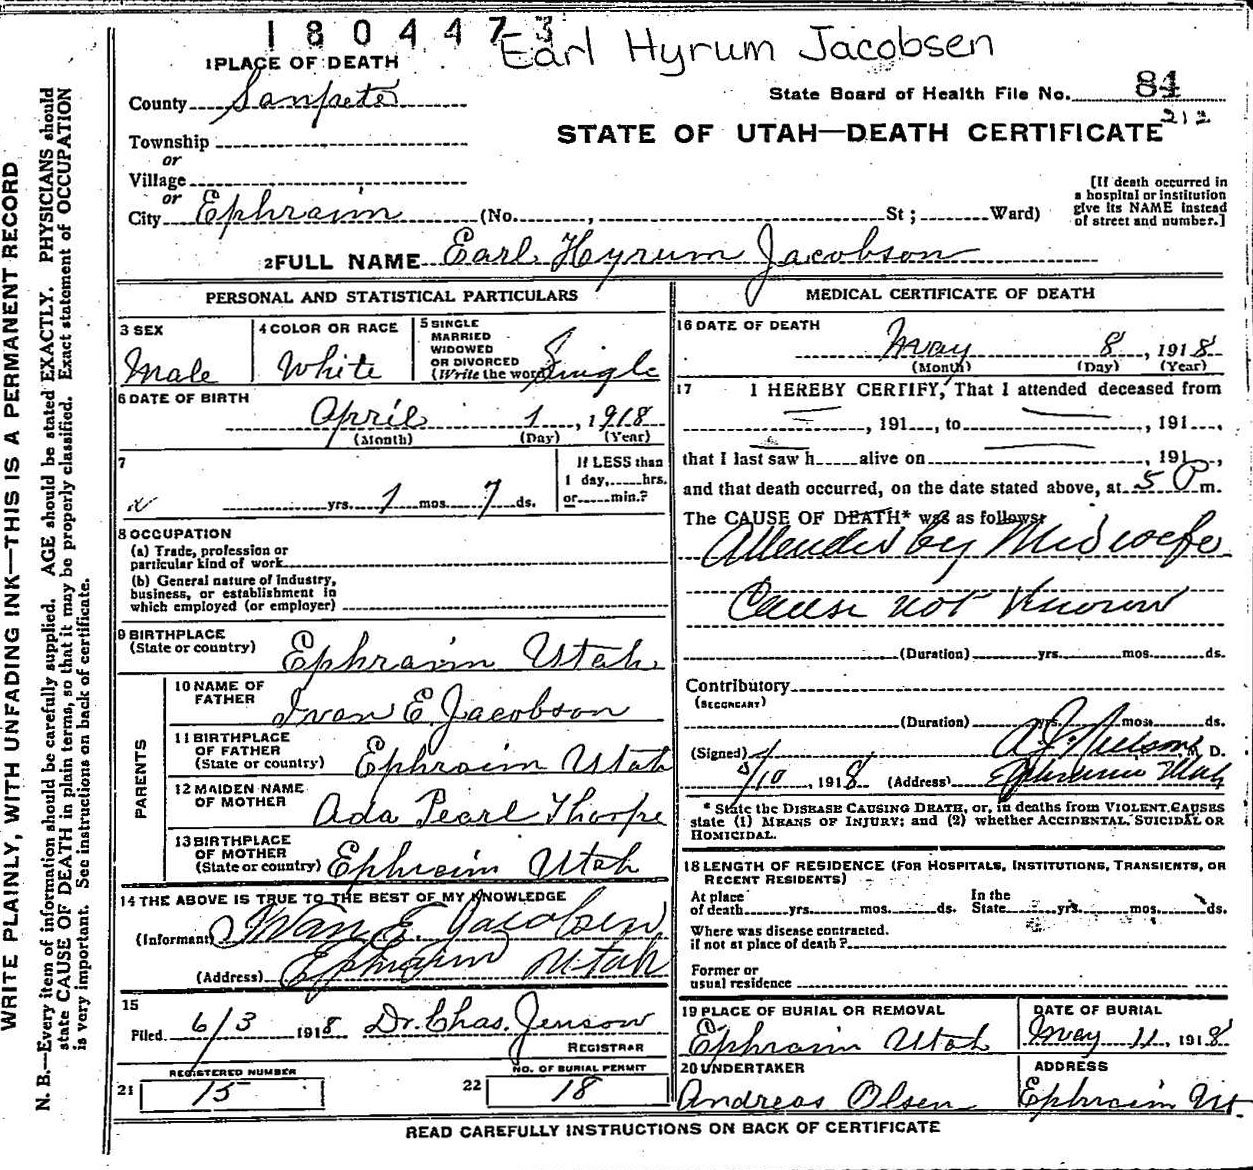 1804473
Earl Hyrum Jacobsen
1 PLACE OF DEATH
County Sanpete
State Board of Health File No. 84
212
Township
STATE OF UTAH—DEATH CERTIFICATE
or
Village
or
City Ephraim (No. , St ; Ward)
[If death occurred in
a hospital or institution
give its NAME instead
of street and number.]
2 FULL NAME Earl Hyrum Jacobson
PERSONAL AND STATISTICAL PARTICULARS
3 SEX
Male
4 COLOR OR RACE
White
5 SINGLE
MARRIED
WIDOWED
OR DIVORCED
(Write the word) Single
6 DATE OF BIRTH
April 1, 1918
(Month) (Day) (Year)
7
yrs. 1 mos. 7 ds.
If LESS than
1 day, hrs.
or min.?
8 OCCUPATION
(a) Trade, profession or
particular kind of work
(b) General nature of industry,
business, or establishment in
which employed (or employer)
9 BIRTHPLACE
(State or country) Ephraim Utah
PARENTS
10 NAME OF
FATHER Ivan E. Jacobson
11 BIRTHPLACE
OF FATHER
(State or country) Ephraim Utah
12 MAIDEN NAME
OF MOTHER Ada Pearl Thorpe
13 BIRTHPLACE
OF MOTHER
(State or country) Ephraim Utah
14 THE ABOVE IS TRUE TO THE BEST OF MY KNOWLEDGE
(Informant) Ivan E. Jacobsen
(Address) Ephraim Utah
15
Filed 6/3 1918 Dr. Chas. Jenson
REGISTRAR
REGISTERED NUMBER
21 15
NO. OF BURIAL PERMIT
22 18
MEDICAL CERTIFICATE OF DEATH
16 DATE OF DEATH
May 8, 1918
(Month) (Day) (Year)
17 I HEREBY CERTIFY, That I attended deceased from
, 191 , to , 191 ,
that I last saw h alive on , 191 ,
and that death occurred, on the date stated above, at 5 P m.
The CAUSE OF DEATH* was as follows:
Attended by Midwife
Cause not Known
(Duration) yrs. mos. ds.
Contributory
(SECONDARY)
(Duration) yrs. mos. ds.
(Signed) A. J. Nielson M. D.
5/10, 1918 (Address) Ephraim Utah
* State the DISEASE CAUSING DEATH, or, in deaths from VIOLENT CAUSES
state (1) MEANS OF INJURY; and (2) whether ACCIDENTAL, SUICIDAL OR
HOMICIDAL.
18 LENGTH OF RESIDENCE (FOR HOSPITALS, INSTITUTIONS, TRANSIENTS, OR
RECENT RESIDENTS)
At place
of death yrs. mos. ds.
In the
State yrs. mos. ds.
Where was disease contracted.
if not at place of death?
Former or
usual residence
19 PLACE OF BURIAL OR REMOVAL
Ephraim Utah
DATE OF BURIAL
May 11, 1918
20 UNDERTAKER
Andreas Olsen
ADDRESS
Ephraim Ut.
READ CAREFULLY INSTRUCTIONS ON BACK OF CERTIFICATE
WRITE PLAINLY, WITH UNFADING INK—THIS IS A PERMANENT RECORD
N. B.—Every item of information should be carefully supplied. AGE should be stated EXACTLY. PHYSICIANS should
state CAUSE OF DEATH in plain terms, so that it may be properly classified. Exact statement of OCCUPATION
is very important. See instructions on back of certificate.